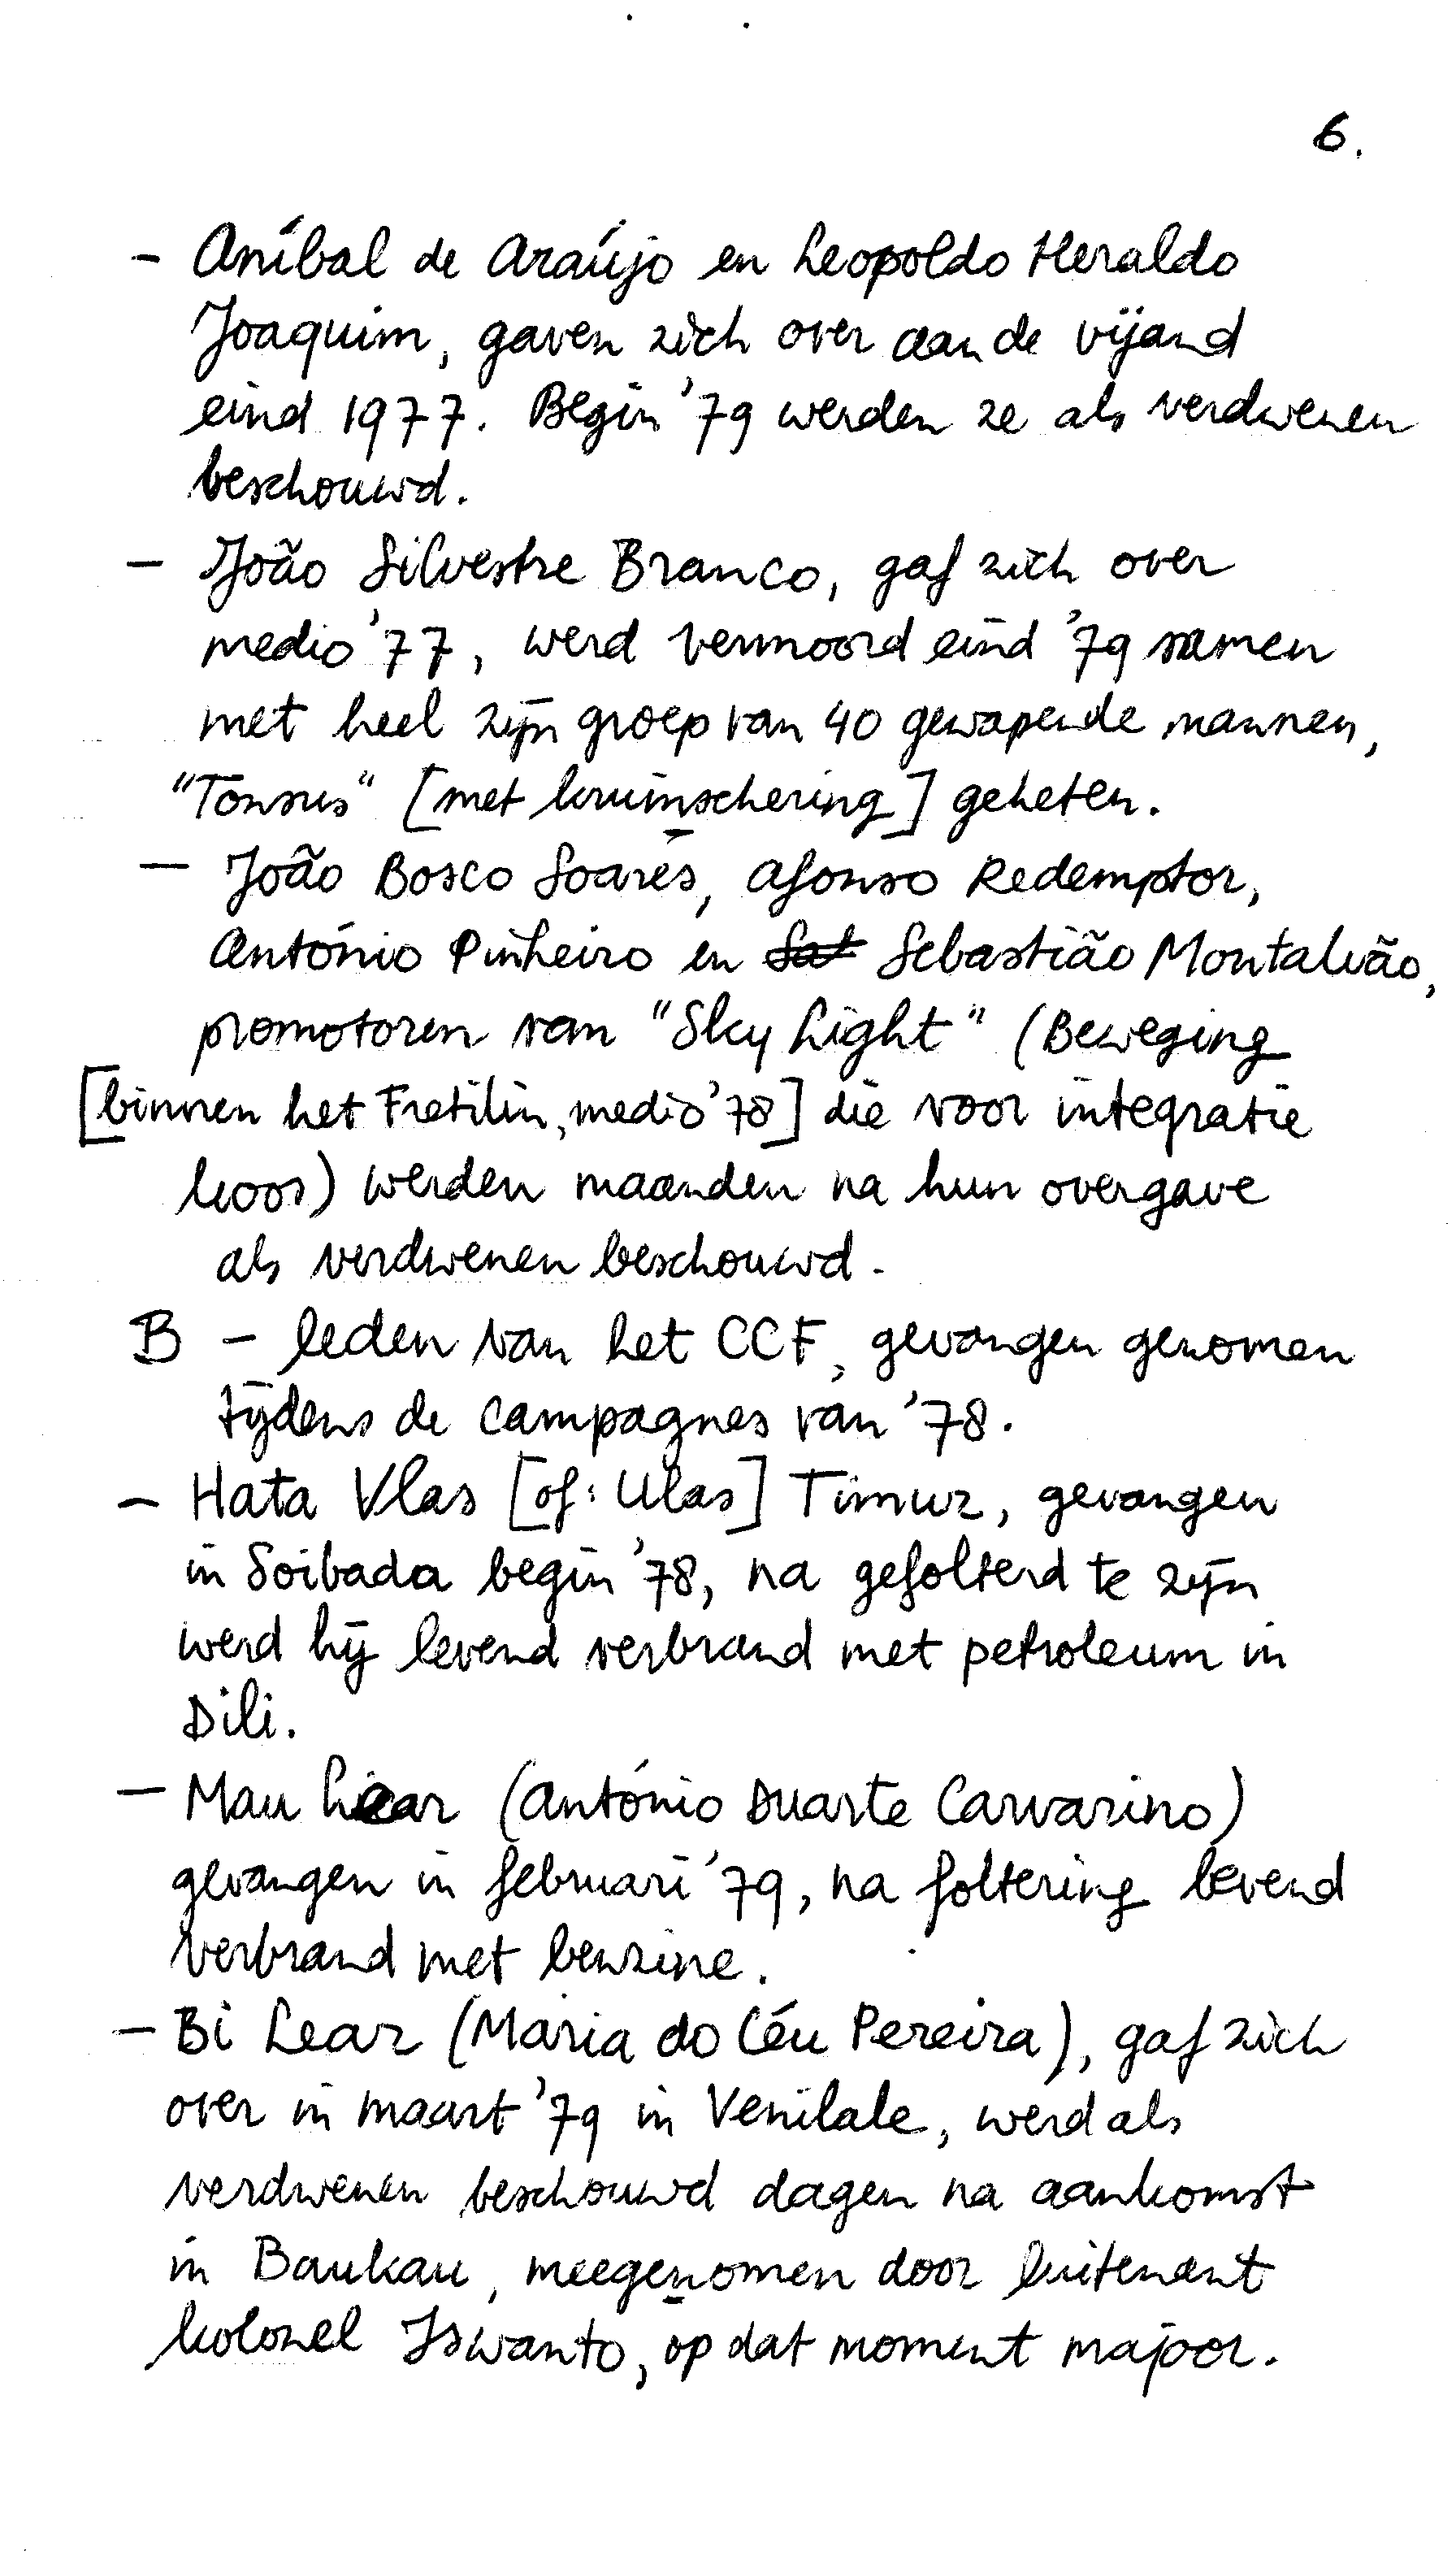 6.
- Aníbal de Araújo en Leopoldo Heraldo
Joaquim, gaven zich over aan de vijand
eind 1977. Begin '79 werden ze als verdwenen
beschouwd.
- João Silvestre Branco, gaf zich over
medio '77, werd vermoord eind '79 samen
met heel zijn groep van 40 gewapende mannen,
"Tonsus" [met kruinschering] geheten.
- João Bosco Soares, Afonso Redemptor,
António Pinheiro en Sat Sebastião Montalvão,
promotoren van "Sky Light" (Beweging
[binnen het Fretilin, medio '78] die voor integratie
koos) werden maanden na hun overgave
als verdwenen beschouwd.
B - leden van het CCF, gevangen genomen
tijdens de campagnes van '78.
- Hata Vlas [of: Ulas] Timur, gevangen
in Soibada begin '78, na gefolterd te zijn
werd hij levend verbrand met petroleum in
Dili.
- Mau Lear (António Duarte Carvarino)
gevangen in februari '79, na foltering levend
verbrand met benzine.
- Bi Lear (Maria do Céu Pereira), gaf zich
over in maart '79 in Venilale, werd als
verdwenen beschouwd dagen na aankomst
in Baukau, meegenomen door luitenant
kolonel Iswanto, op dat moment majoor.